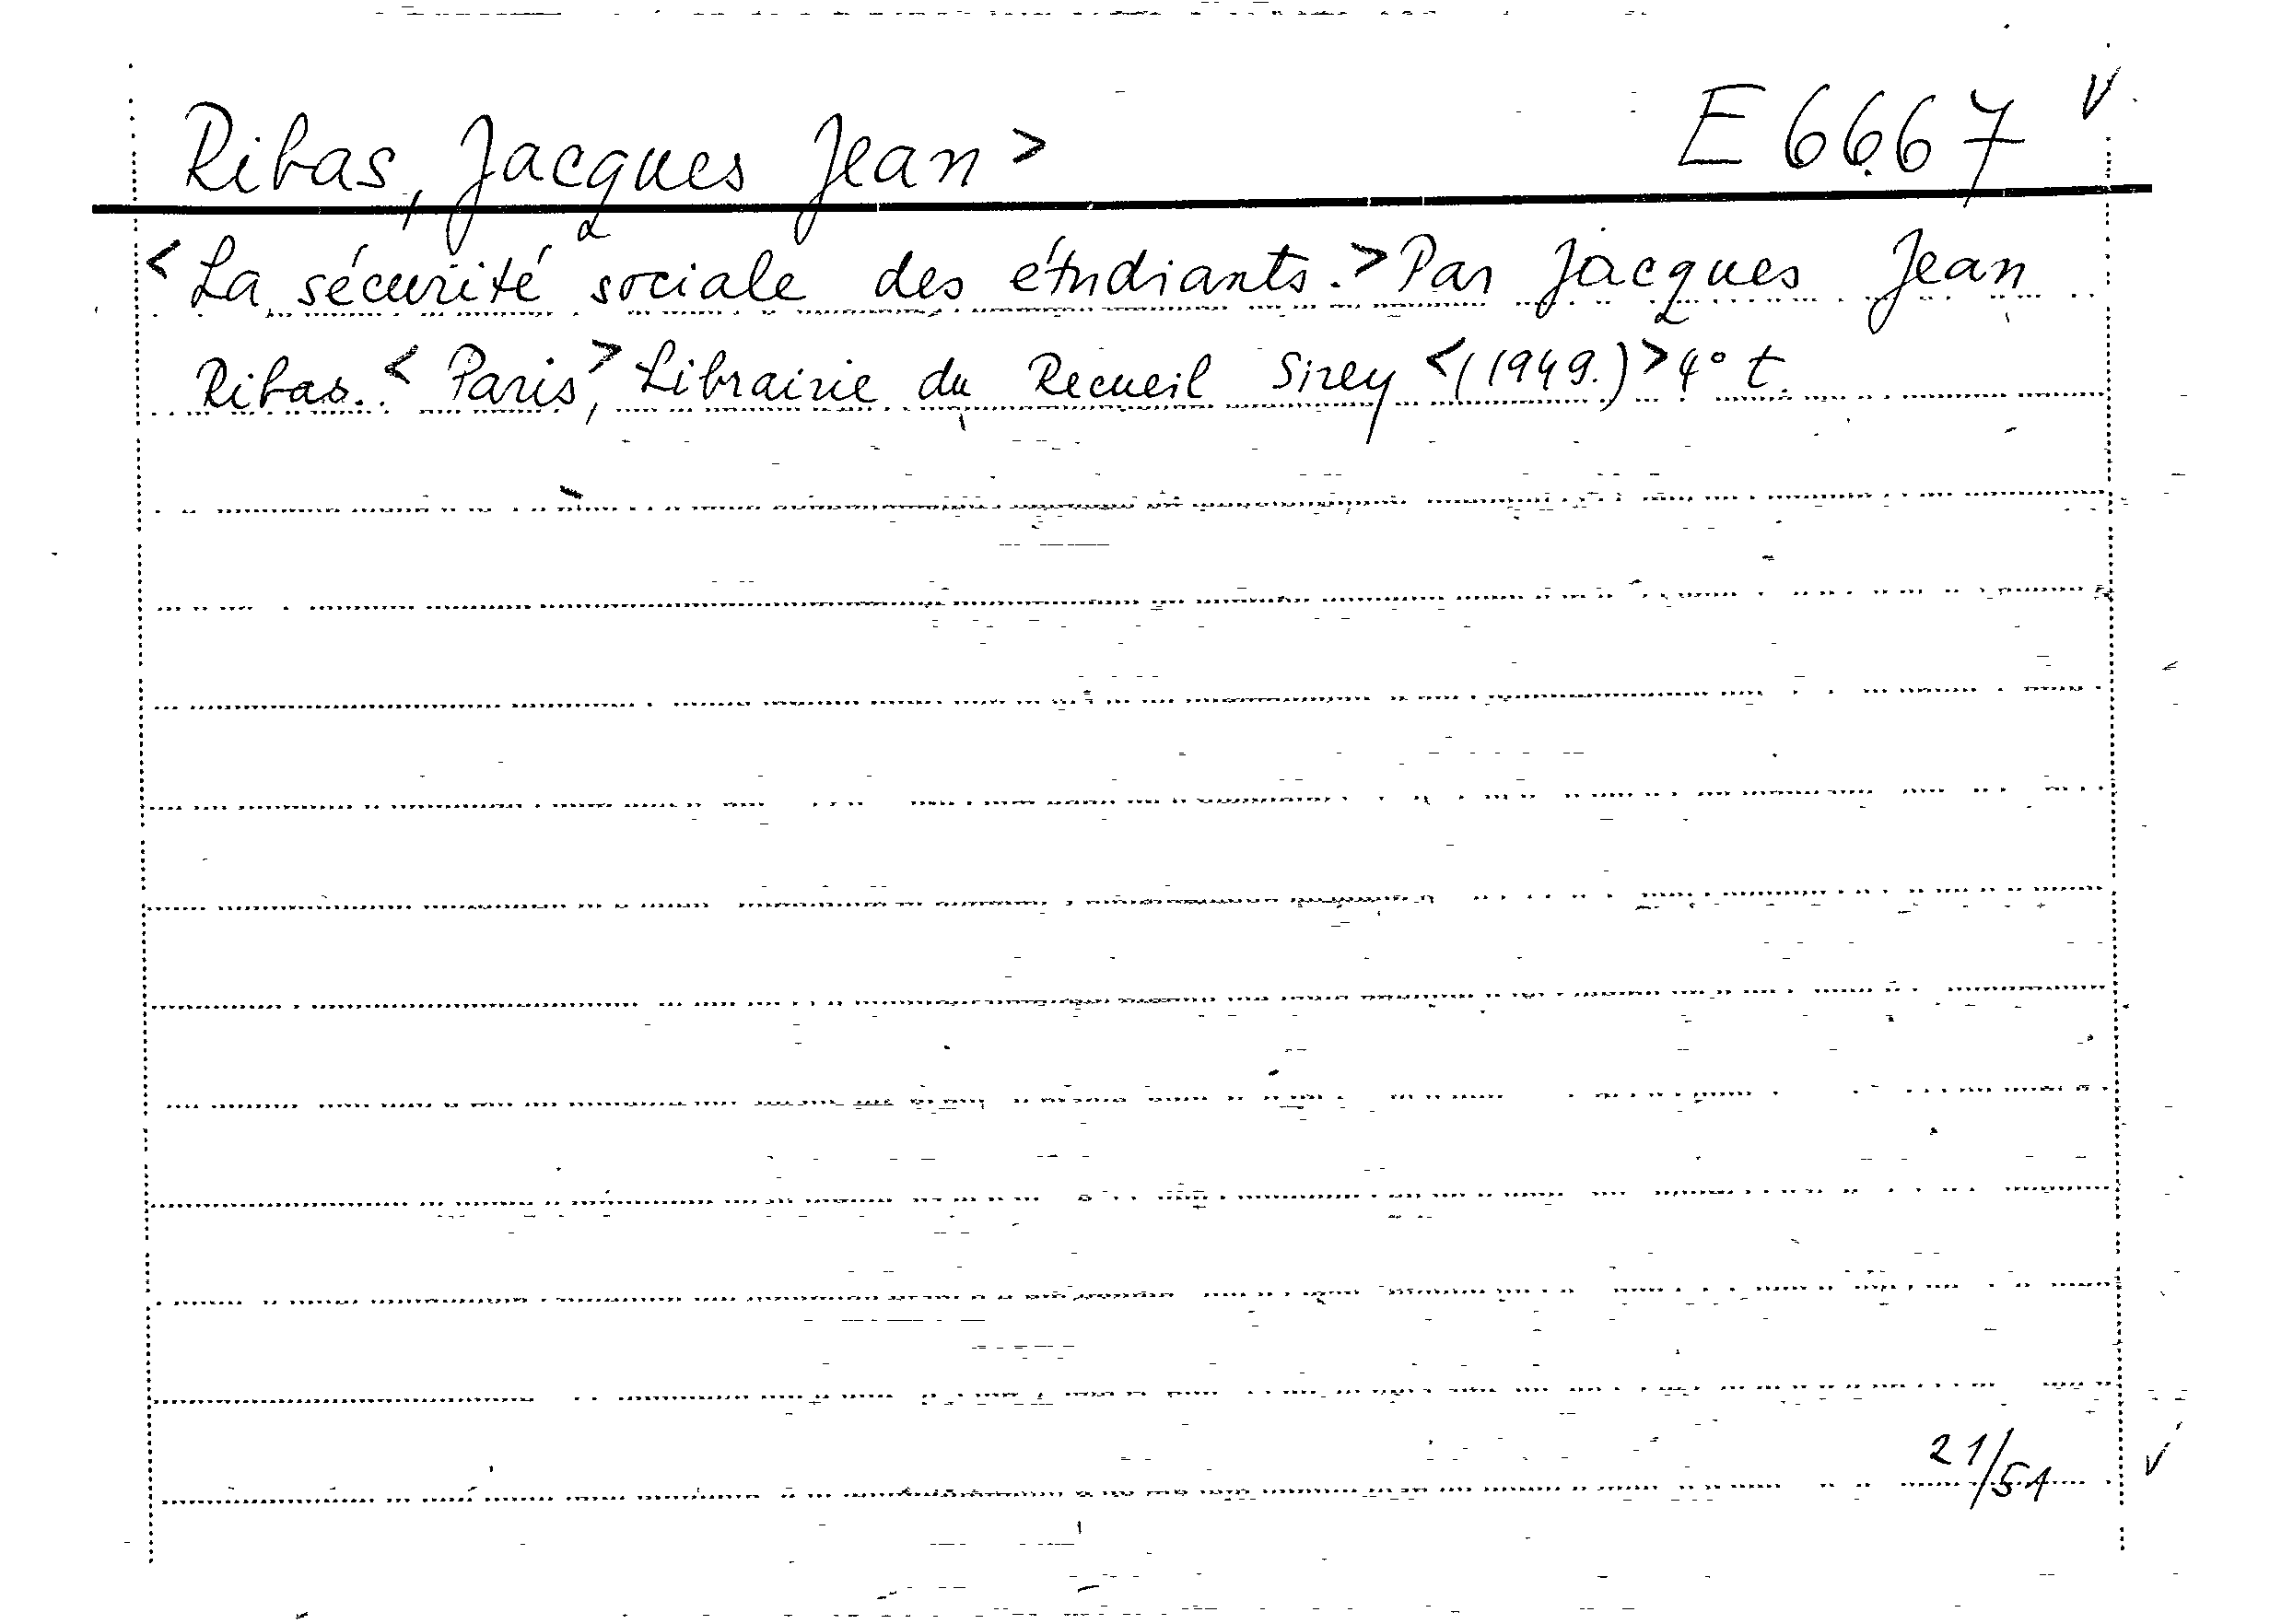 Ribas, Jacques Jean> E 6667 V
<La sécurité sociale des étudiants.> Par Jacques Jean
Ribas. <Paris,> Librairie du Recueil Sirey <(1949.)> 4° t.
21/51 V